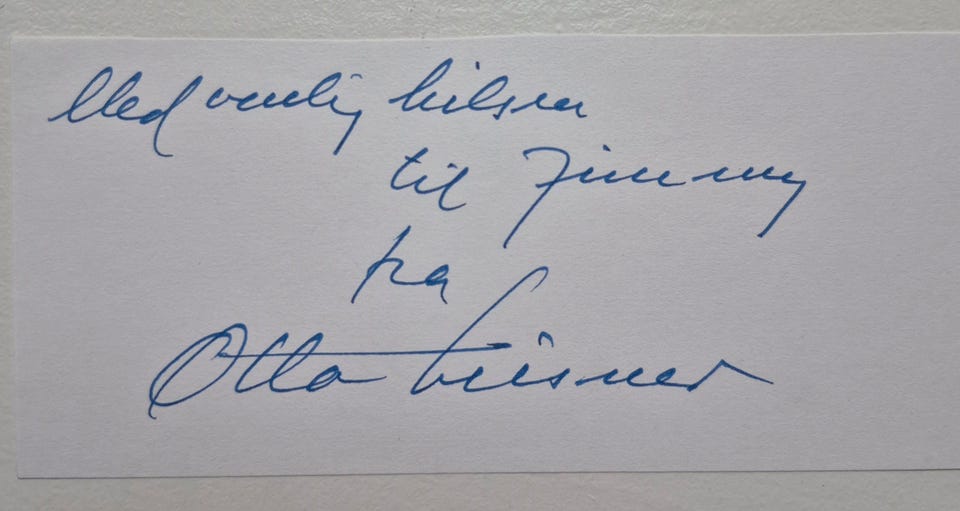 Med venlig hilsen
til Jimmy
fra
Otto Leisner